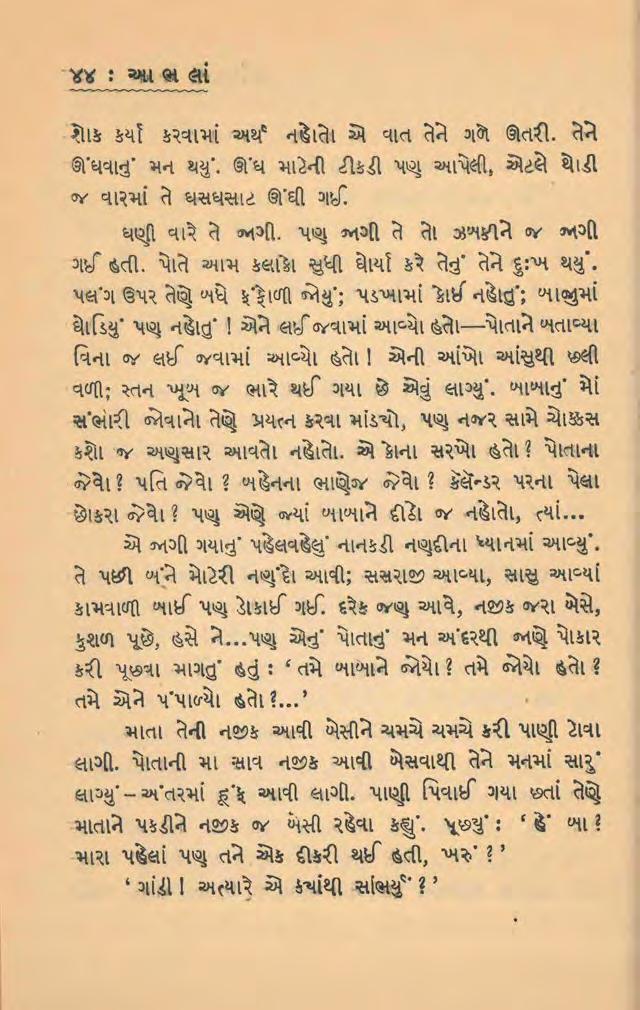 ૪૪ : આ ભ લાં
શોક કર્યા કરવામાં અર્થ નહોતો એ વાત તેને ગળે ઊતરી. તેને
ઊંઘવાનું મન થયું. ઊંઘ માટેની ટીકડી પણ આપેલી, એટલે થોડી
જ વારમાં તે ઘસઘસાટ ઊંઘી ગઈ.
ઘણી વારે તે જાગી. પણ જાગી તે તો ઝબકીને જ જાગી
ગઈ હતી. પોતે આમ કલાકો સુધી ઘોર્યા કરે તેનું તેને દુઃખ થયું.
પલંગ ઉપર તેણે બધે ફંફોળી જોયું; પડખામાં કોઈ નહોતું; બાજુમાં
ઘોડિયું પણ નહોતું ! એને લઈ જવામાં આવ્યો હતો—પોતાને બતાવ્યા
વિના જ લઈ જવામાં આવ્યો હતો! એની આંખો આંસુથી છલી
વળી; સ્તન ખૂબ જ ભારે થઈ ગયા છે એવું લાગ્યું. બાબાનું મોં
સંભારી જોવાનો તેણે પ્રયત્ન કરવા માંડ્યો, પણ નજર સામે ચોક્કસ
કશો જ અણુસાર આવતો નહોતો. એ કોના સરખો હતો? પોતાના
જેવો? પતિ જેવો? બહેનના ભાણેજ જેવો? કૅલૅન્ડર પરના પેલા
છોકરા જેવો? પણ એણે જ્યાં બાબાને દીઠો જ નહોતો, ત્યાં...
એ જાગી ગયાનું પહેલવહેલું નાનકડી નણદીના ધ્યાનમાં આવ્યું.
તે પછી બંને મોટેરી નણંદો આવી; સસરાજી આવ્યા, સાસુ આવ્યાં
કામવાળી બાઈ પણ ડોકાઈ ગઈ. દરેક જણ આવે, નજીક જરા બેસે,
કુશળ પૂછે, હસે ને...પણ એનું પોતાનું મન અંદરથી જાણે પોકાર
કરી પૂછવા માગતું હતું : ‘તમે બાબાને જોયો? તમે જોયો હતો?
તમે એને પંપાળ્યો હતો?...’
માતા તેની નજીક આવી બેસીને ચમચે ચમચે કરી પાણી ટોવા
લાગી. પોતાની મા સાવ નજીક આવી બેસવાથી તેને મનમાં સારું
લાગ્યું – અંતરમાં હૂંફ આવી લાગી. પાણી પિવાઈ ગયા છતાં તેણે
માતાને પકડીને નજીક જ બેસી રહેવા કહ્યું. પૂછ્યું : ‘હેં બા?
મારા પહેલાં પણ તને એક દીકરી થઈ હતી, ખરું?’
‘ગાંડી! અત્યારે એ ક્યાંથી સાંભર્યું?’